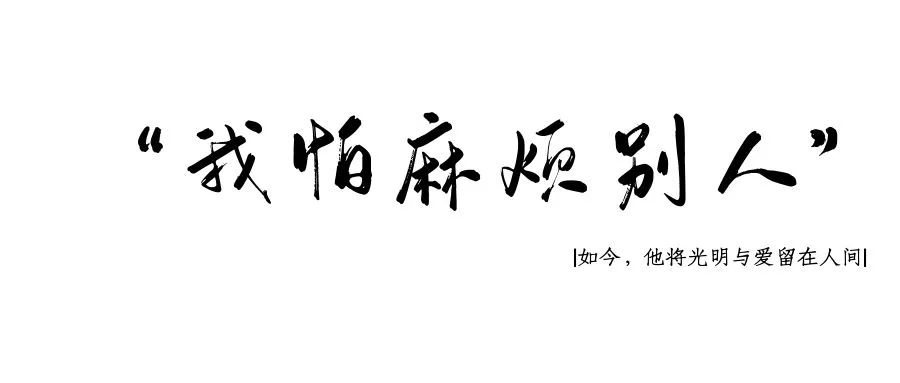 “我怕麻烦别人”
|如今，他将光明与爱留在人间|